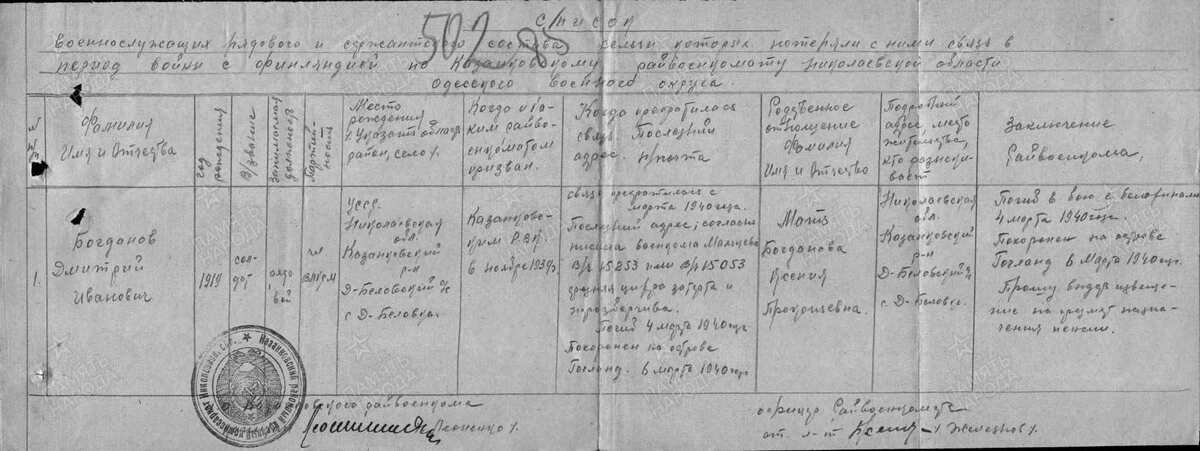 список
военнослужащих рядового и сержантского состава семьи которых потеряли с ними связь в
период войны с финляндией по Казанковскому райвоенкомату николаевской области
Одесского военного округа.
Фамилия
Имя и Отчества
год рождения
В/звание
Занимаемая должность
Партийность
Место
рождения
/Указат область
район, село/.
Когда и каким райвоенкоматом
призван.
Когда прекратилась
связь. Последний
адрес. п/почта
Родственное
отношение
Фамилия
Имя и Отчество
Подробный
адрес, место
жительства,
кто разыскивает
Заключение
Райвоенкома,
1.
Богданов
Дмитрий
Иванович
1919
солдат
рядовой
чл
ВЛКСМ
УССР.
Николаевская
обл.
Казанковский
р-н
Д-Беловский с/с
с Д-Беловка.
Казанковским Р.В.К.
6 ноября 1939 г
связь прекратилась с
марта 1940 года.
Последний адрес; согласно
письма военкома Мальцева
В/ч 15253 или В/ч 15053
средняя цифра затерта и
неразборчива.
Погиб 4 марта 1940 года
Похоронен на острове
Гогланд. 6 марта 1940 года
Мать
Богданова
Ксения
Прокопьевна.
Николаевская
обл.
Казанковский
р-н
Д-Беловский с/с
с Д-Беловка.
Погиб в бою с белофинами
4 марта 1940 года.
Похоронен на острове
Гогланд 6 марта 1940 года
Прошу выдать извещение на предмет назначения пенсии.
райвоенкома
/Леоненко/.
офицер Райвоенкомата
ст. л-т
/Железнов/.
ПАМЯТЬ НАРОДА